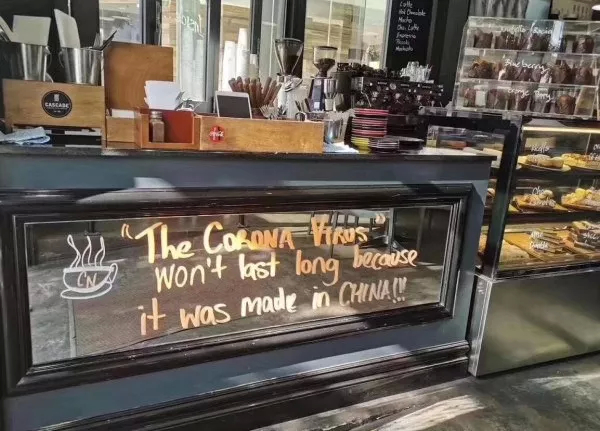 Latte
Hot Chocolate
Mocha
Chai Latte
Espresso
CASCADE
"The CORONA VIRUS"
Won't last long because
it was made in CHINA!!!
CN